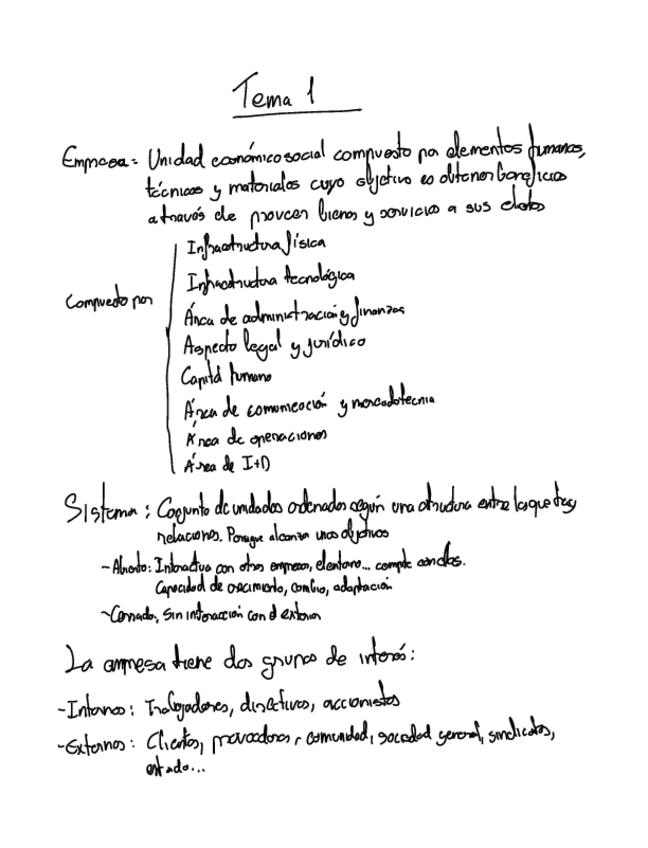 Tema 1
Empresa = Unidad económico social compuesto por elementos humanos,
técnicos y materiales cuyo objetivo es obtener beneficios
a través de proveer bienes y servicios a sus clientes
Compuesto por
Infraestructura física
Infraestructura tecnológica
Área de administración y finanzas
Aspecto legal y jurídico
Capital humano
Área de comunicación y mercadotecnia
Área de operaciones
Área de I+D
Sistema: Conjunto de unidades ordenados según una estructura entre las que hay
relaciones. Persigue alcanzar unos objetivos
- Abierto: Interactua con otras empresas, el entorno... compite con ellas.
Capacidad de crecimiento, cambio, adaptación
- Cerrado, sin interacción con el exterior
La empresa tiene dos grupos de interés:
- Internos: Trabajadores, directivos, accionistas
- Externos: Clientes, proveedores, comunidad, sociedad general, sindicatos,
estado...